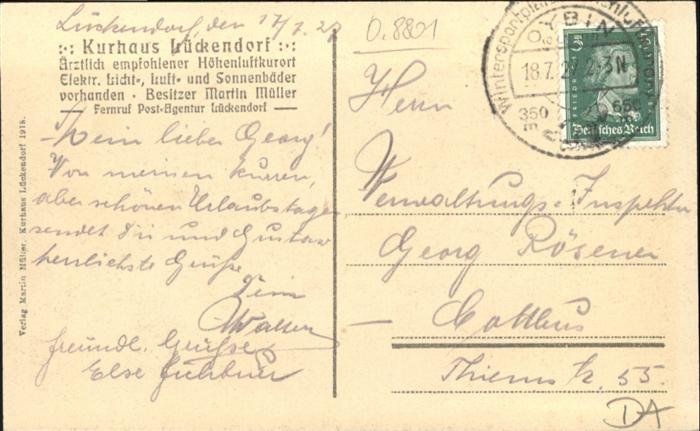 Lückendorf, den 17/7.27
O.8801
:·: Kurhaus Lückendorf :·:
Ärztlich empfohlener Höhenluftkurort
Elektr. Licht-, Luft- und Sonnenbäder
vorhanden · Besitzer Martin Müller
Fernruf Post-Agentur Lückendorf
Mein lieber Georg!
Von meinen kurzen,
aber schönen Urlaubstagen
sendet Dir und Gustav
herzlichste Grüße
Dein
Walter
freundl. Grüße
Else
Verlag Martin Müller, Kurhaus Lückendorf 1918.
OYBIN
18.7.27. 2-3N
350
650
Deutsches Reich
Herrn
Verwaltungs-Inspektor
Georg Rösener
Cottbus
Thiemstr. 55.
DA